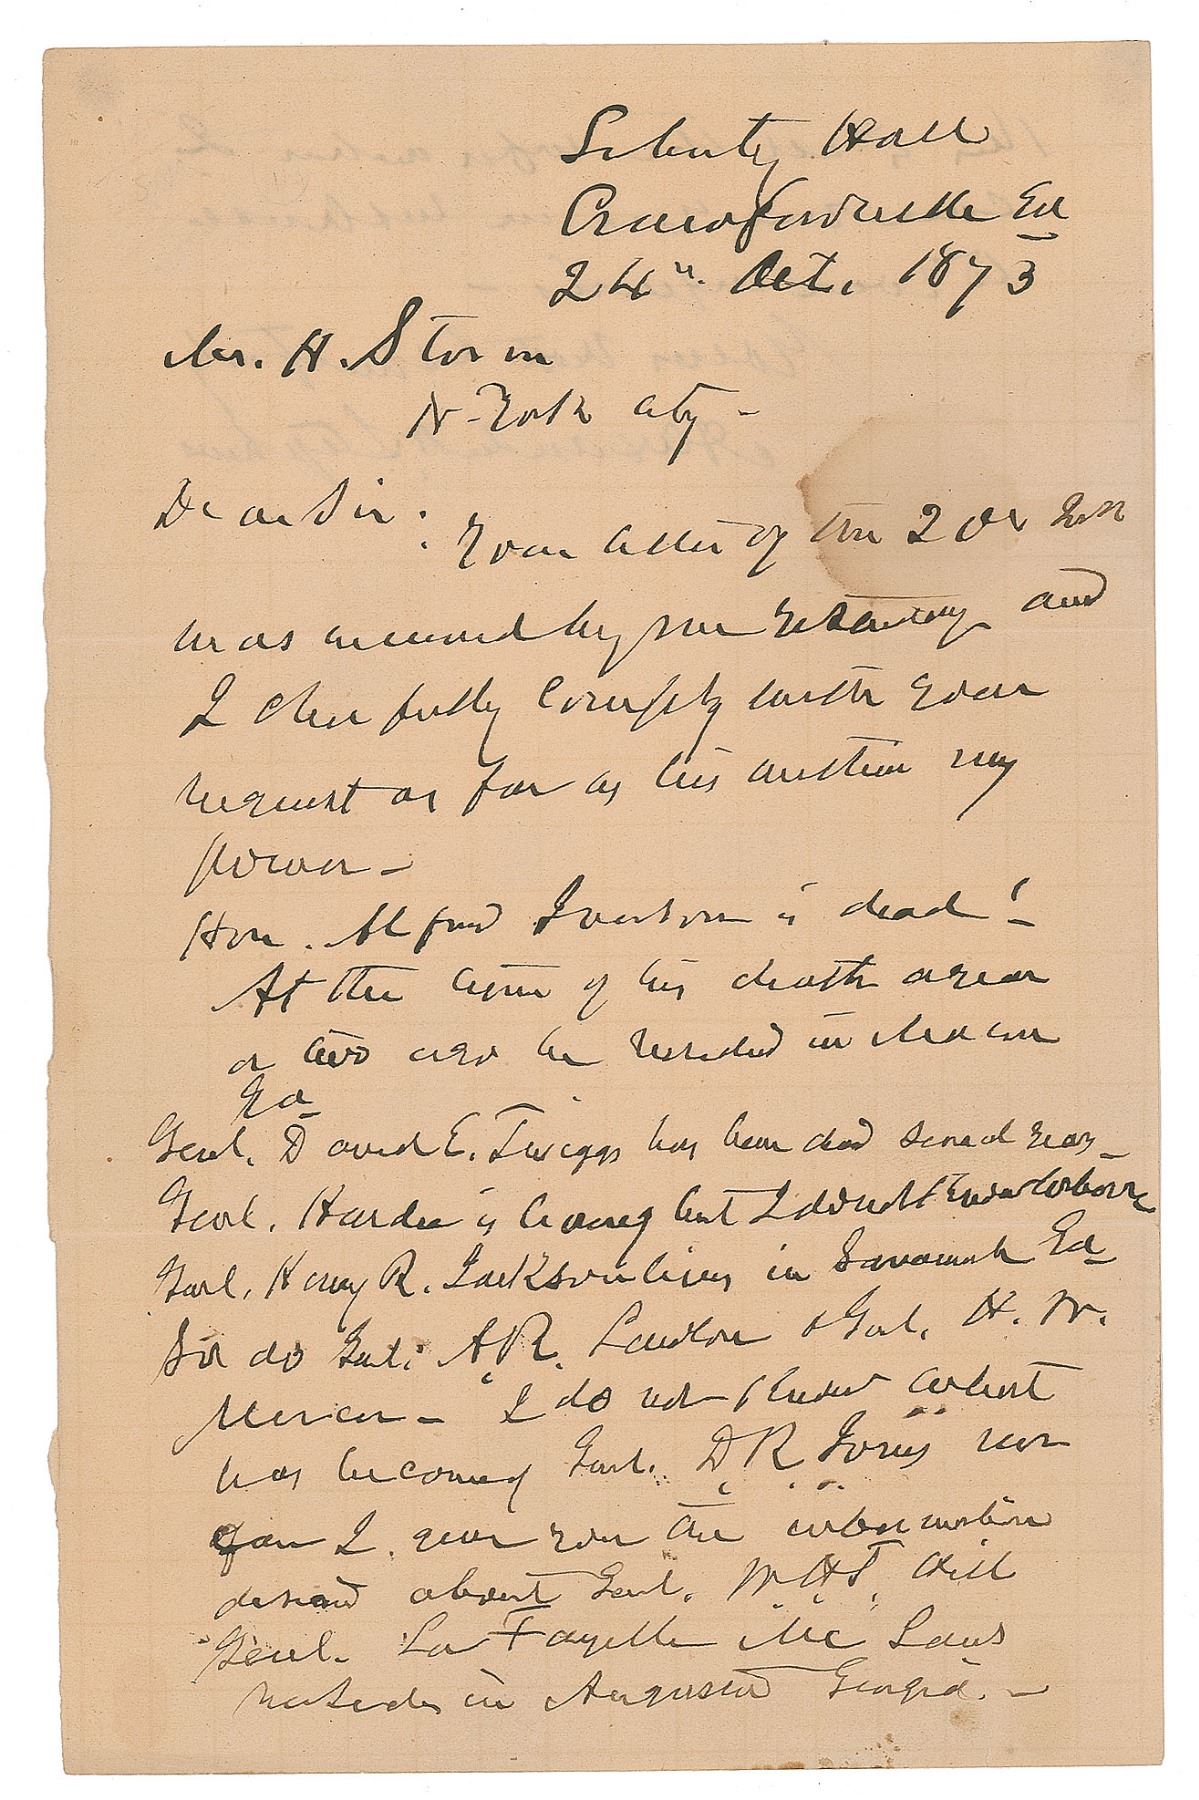 Liberty Hall
Crawfordville Ga
24th. Oct. 1873
Mr. H. Storm
N-York City -
Dear Sir:
Your letter of the 20th Inst
was received by me yesterday and
I cheerfully comply with your
request as far as lies within my
power -
Hon. Alfred Iverson is dead! -
At the time of his death a year
or two ago he resided in Macon
Ga
Genl. David E. Twiggs has been dead several years -
Genl. Hardee is living but I do not know where
Genl. Henry R. Jackson lives in Savannah Ga
So do Genl. A. R. Lawton & Genl. H. W.
Mercer - I do not know what
has become of Genl. D. R. Jones nor
can I give you the information
desired about Genl. W. H. T.
Genl. La Fayette Mc Laws
resides in Augusta Georgia. -